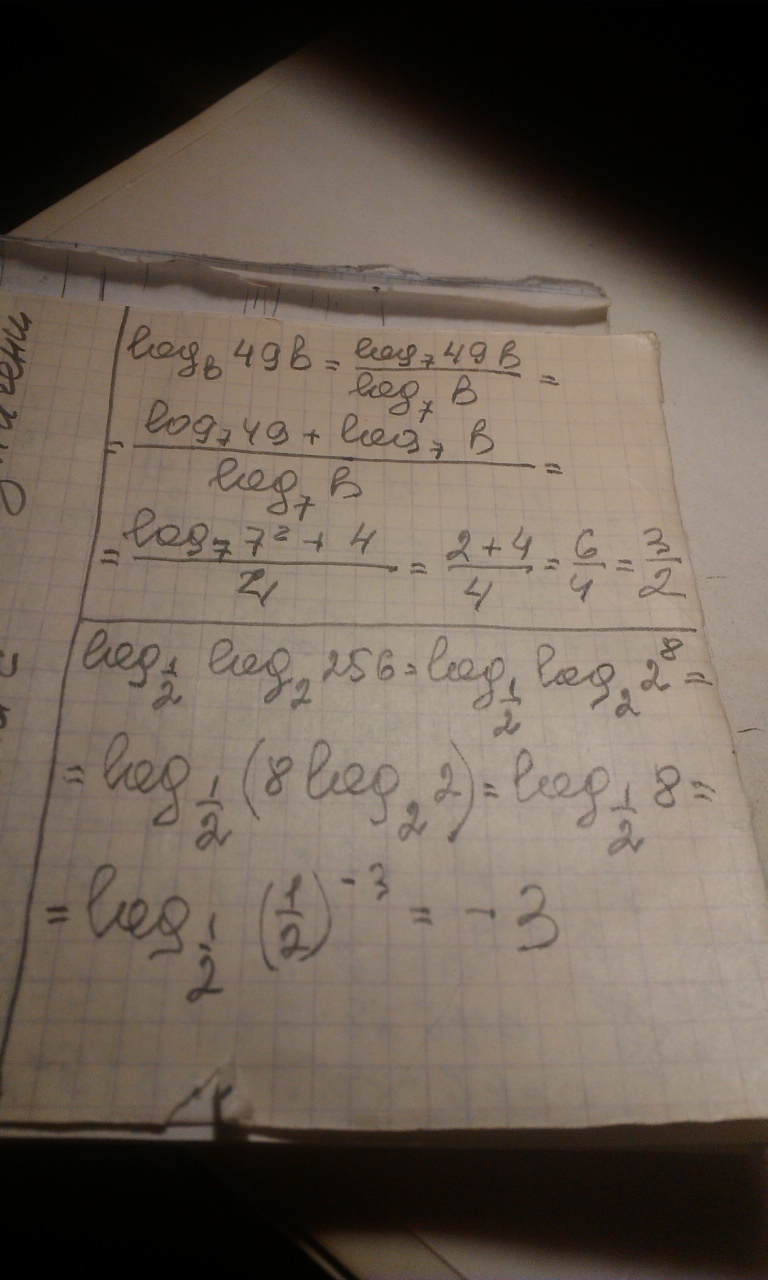 log_в 49в = \frac{log_7 49в}{log_7 в} =
= \frac{log_7 49 + log_7 в}{log_7 в} =
= \frac{log_7 7^2 + 4}{4} = \frac{2+4}{4} = \frac{6}{4} = \frac{3}{2}
log_{\frac{1}{2}} log_2 256 = log_{\frac{1}{2}} log_2 2^8 =
= log_{\frac{1}{2}} (8 log_2 2) = log_{\frac{1}{2}} 8 =
= log_{\frac{1}{2}} (\frac{1}{2})^{-3} = -3